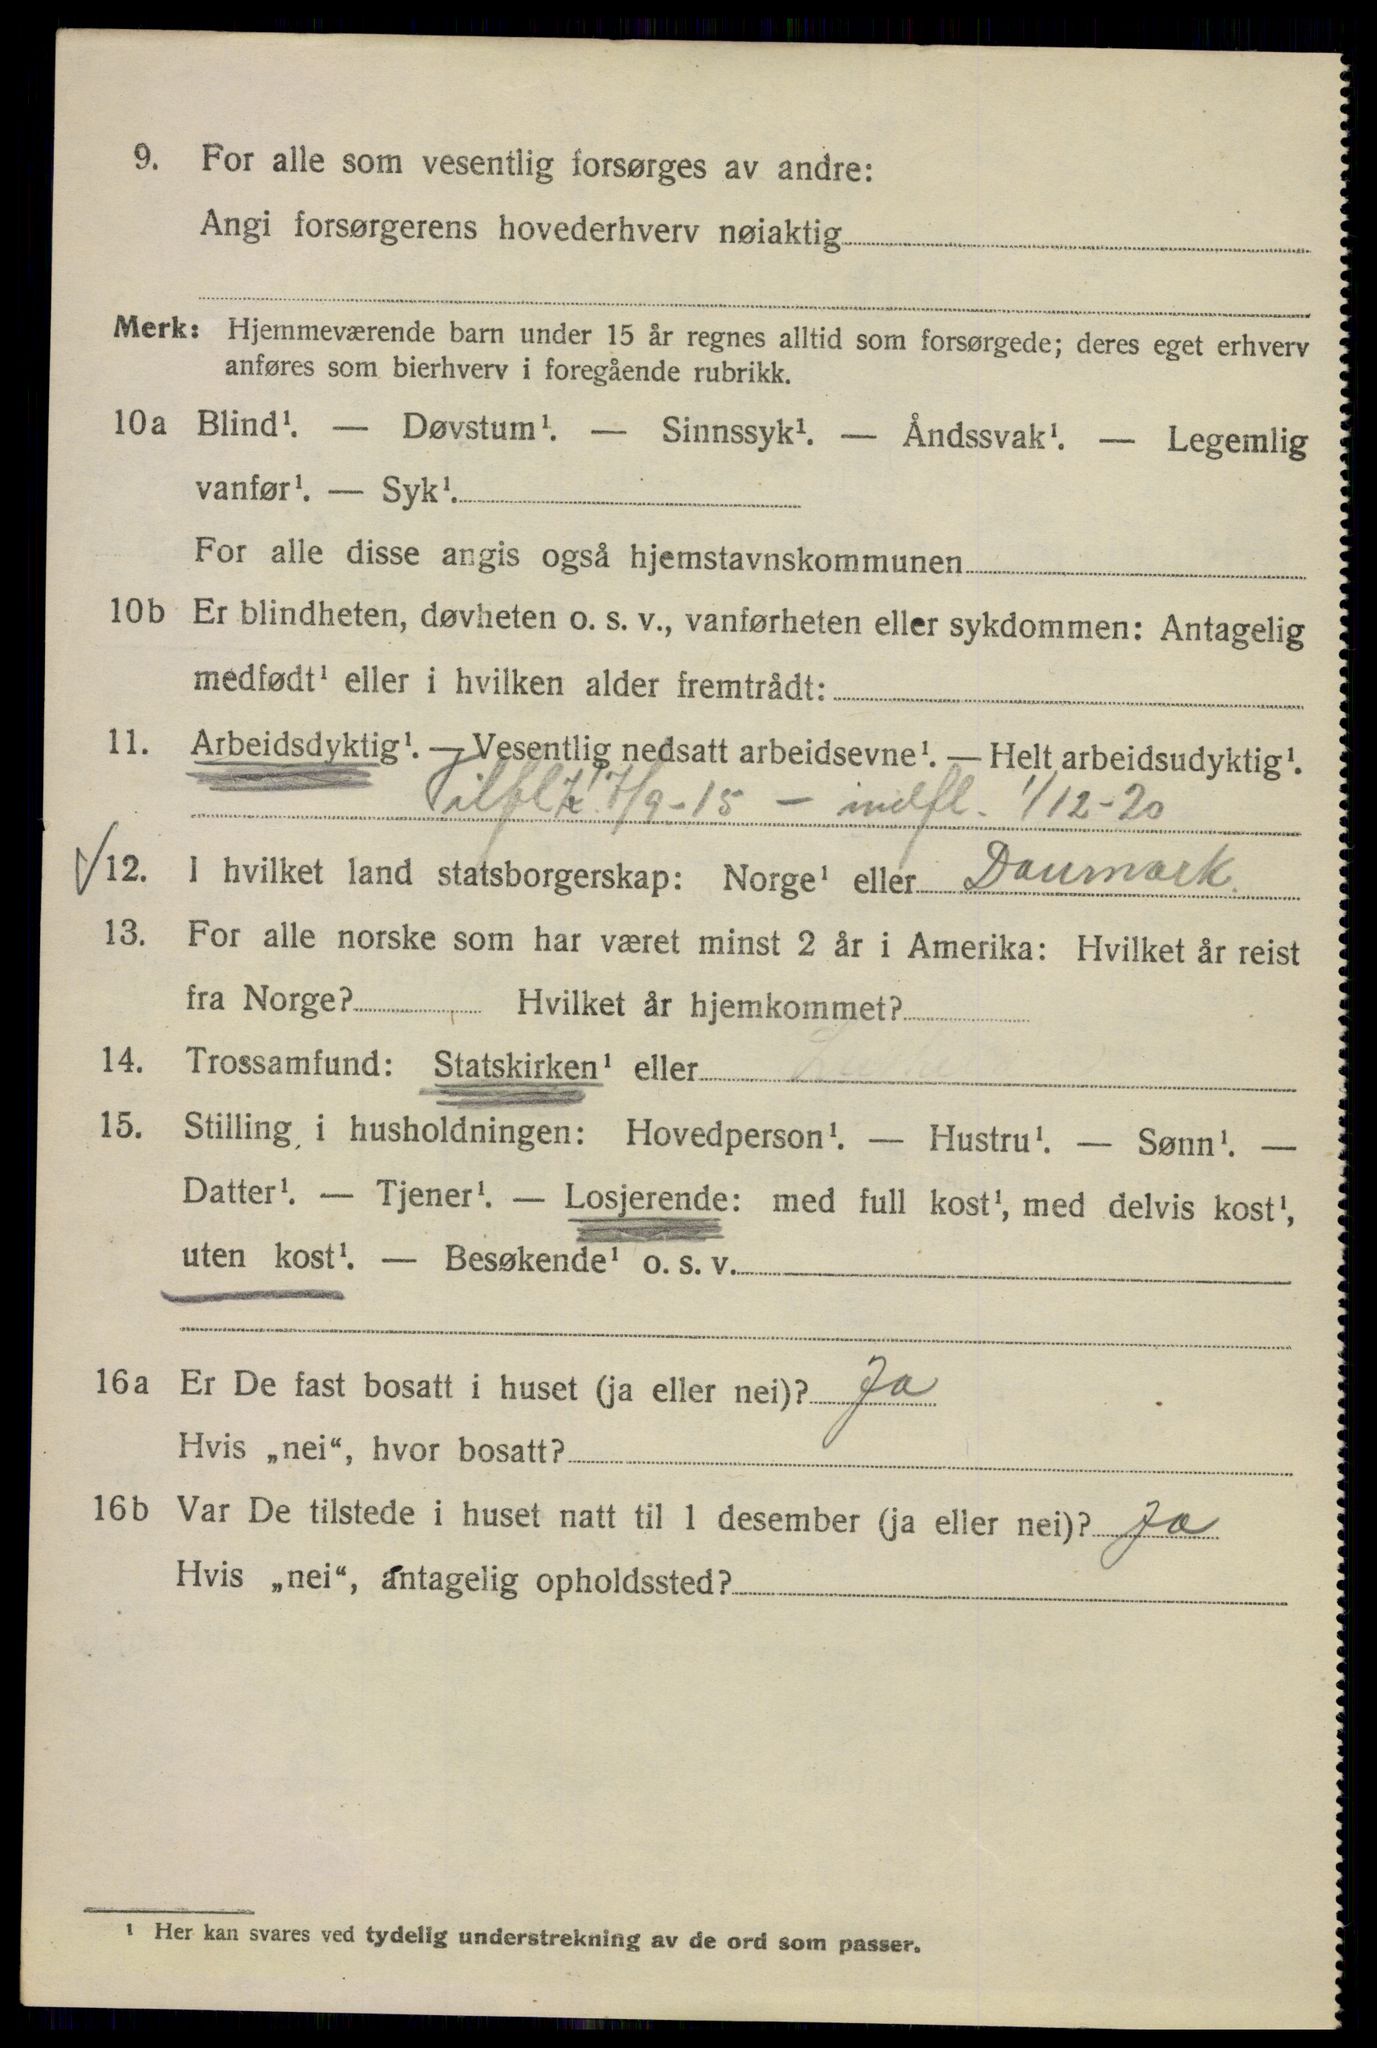 9. For alle som vesentlig forsørges av andre:
Angi forsørgerens hovederhverv nøiaktig
Merk: Hjemmeværende barn under 15 år regnes alltid som forsørgede; deres eget erhverv
anføres som bierhverv i foregående rubrikk.
10a Blind¹. — Døvstum¹. — Sinnssyk¹. — Åndssvak¹. — Legemlig
vanfør¹. — Syk¹.
For alle disse angis også hjemstavnskommunen
10b Er blindheten, døvheten o. s. v., vanførheten eller sykdommen: Antagelig
medfødt¹ eller i hvilken alder fremtrådt:
11. Arbeidsdyktig¹. — Vesentlig nedsatt arbeidsevne¹. — Helt arbeidsudyktig¹.
7/9-15 — indfl. 1/12-20
12. I hvilket land statsborgerskap: Norge¹ eller Danmark.
13. For alle norske som har været minst 2 år i Amerika: Hvilket år reist
fra Norge? Hvilket år hjemkommet?
14. Trossamfund: Statskirken¹ eller
15. Stilling i husholdningen: Hovedperson¹. — Hustru¹. — Sønn¹. —
Datter¹. — Tjener¹. — Losjerende: med full kost¹, med delvis kost¹,
uten kost¹. — Besøkende¹ o. s. v.
16a Er De fast bosatt i huset (ja eller nei)? Ja
Hvis „nei“, hvor bosatt?
16b Var De tilstede i huset natt til 1 desember (ja eller nei)? Ja
Hvis „nei“, antagelig opholdssted?
¹ Her kan svares ved tydelig understrekning av de ord som passer.